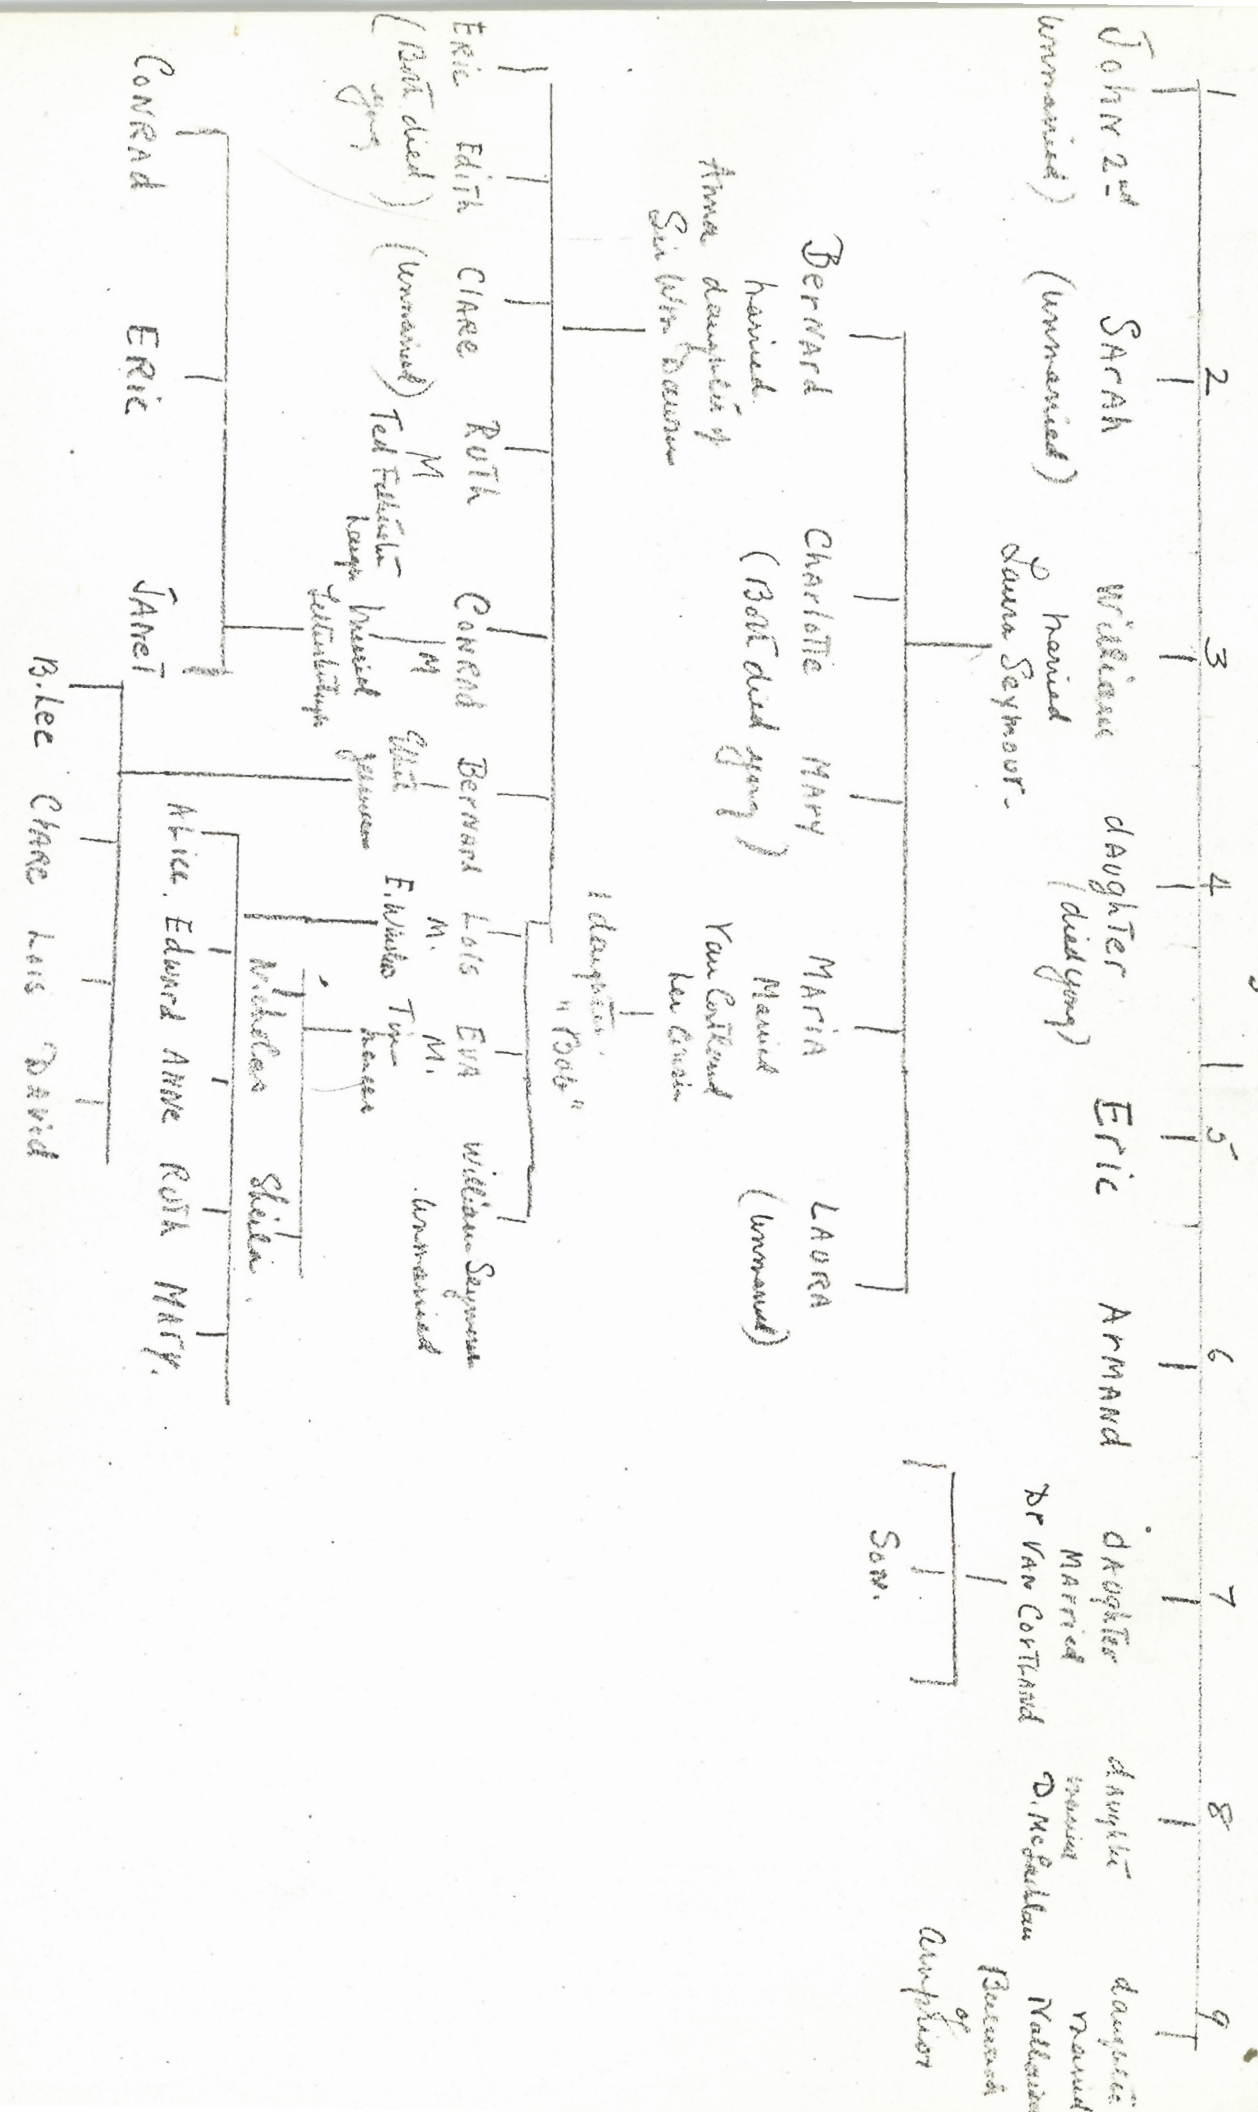 1 2 3 4 5 6 7 8 9
John 2nd
(unmarried)
Sarah
(unmarried)
William
married
Laura Seymour.
daughter
(died young)
Eric
Armand
daughter
Married
Dr Van Cortland
daughter
married
D. McLachlan
daughter
married
of
Arnprior
Son.
Bernard
married
Anna daughter of
Sir Wm Dawson
Charlotte Mary
(Both died young)
Maria
Married
Van Cortland
her Cousin
Laura
(unmarried)
1 daughter.
"Bob"
Eric Edith
(Both died
young)
Clare
(unmarried)
Ruth
M
Ted
Conrad
M
Married
Bernard
Lois
M.
E. Winslow
Eva
M.
Tim
William Seymour
unmarried
Nicholas Sheila.
Conrad Eric Janet
Alice. Edward Anne Ruth Mary.
B. Lee Clare Lois David